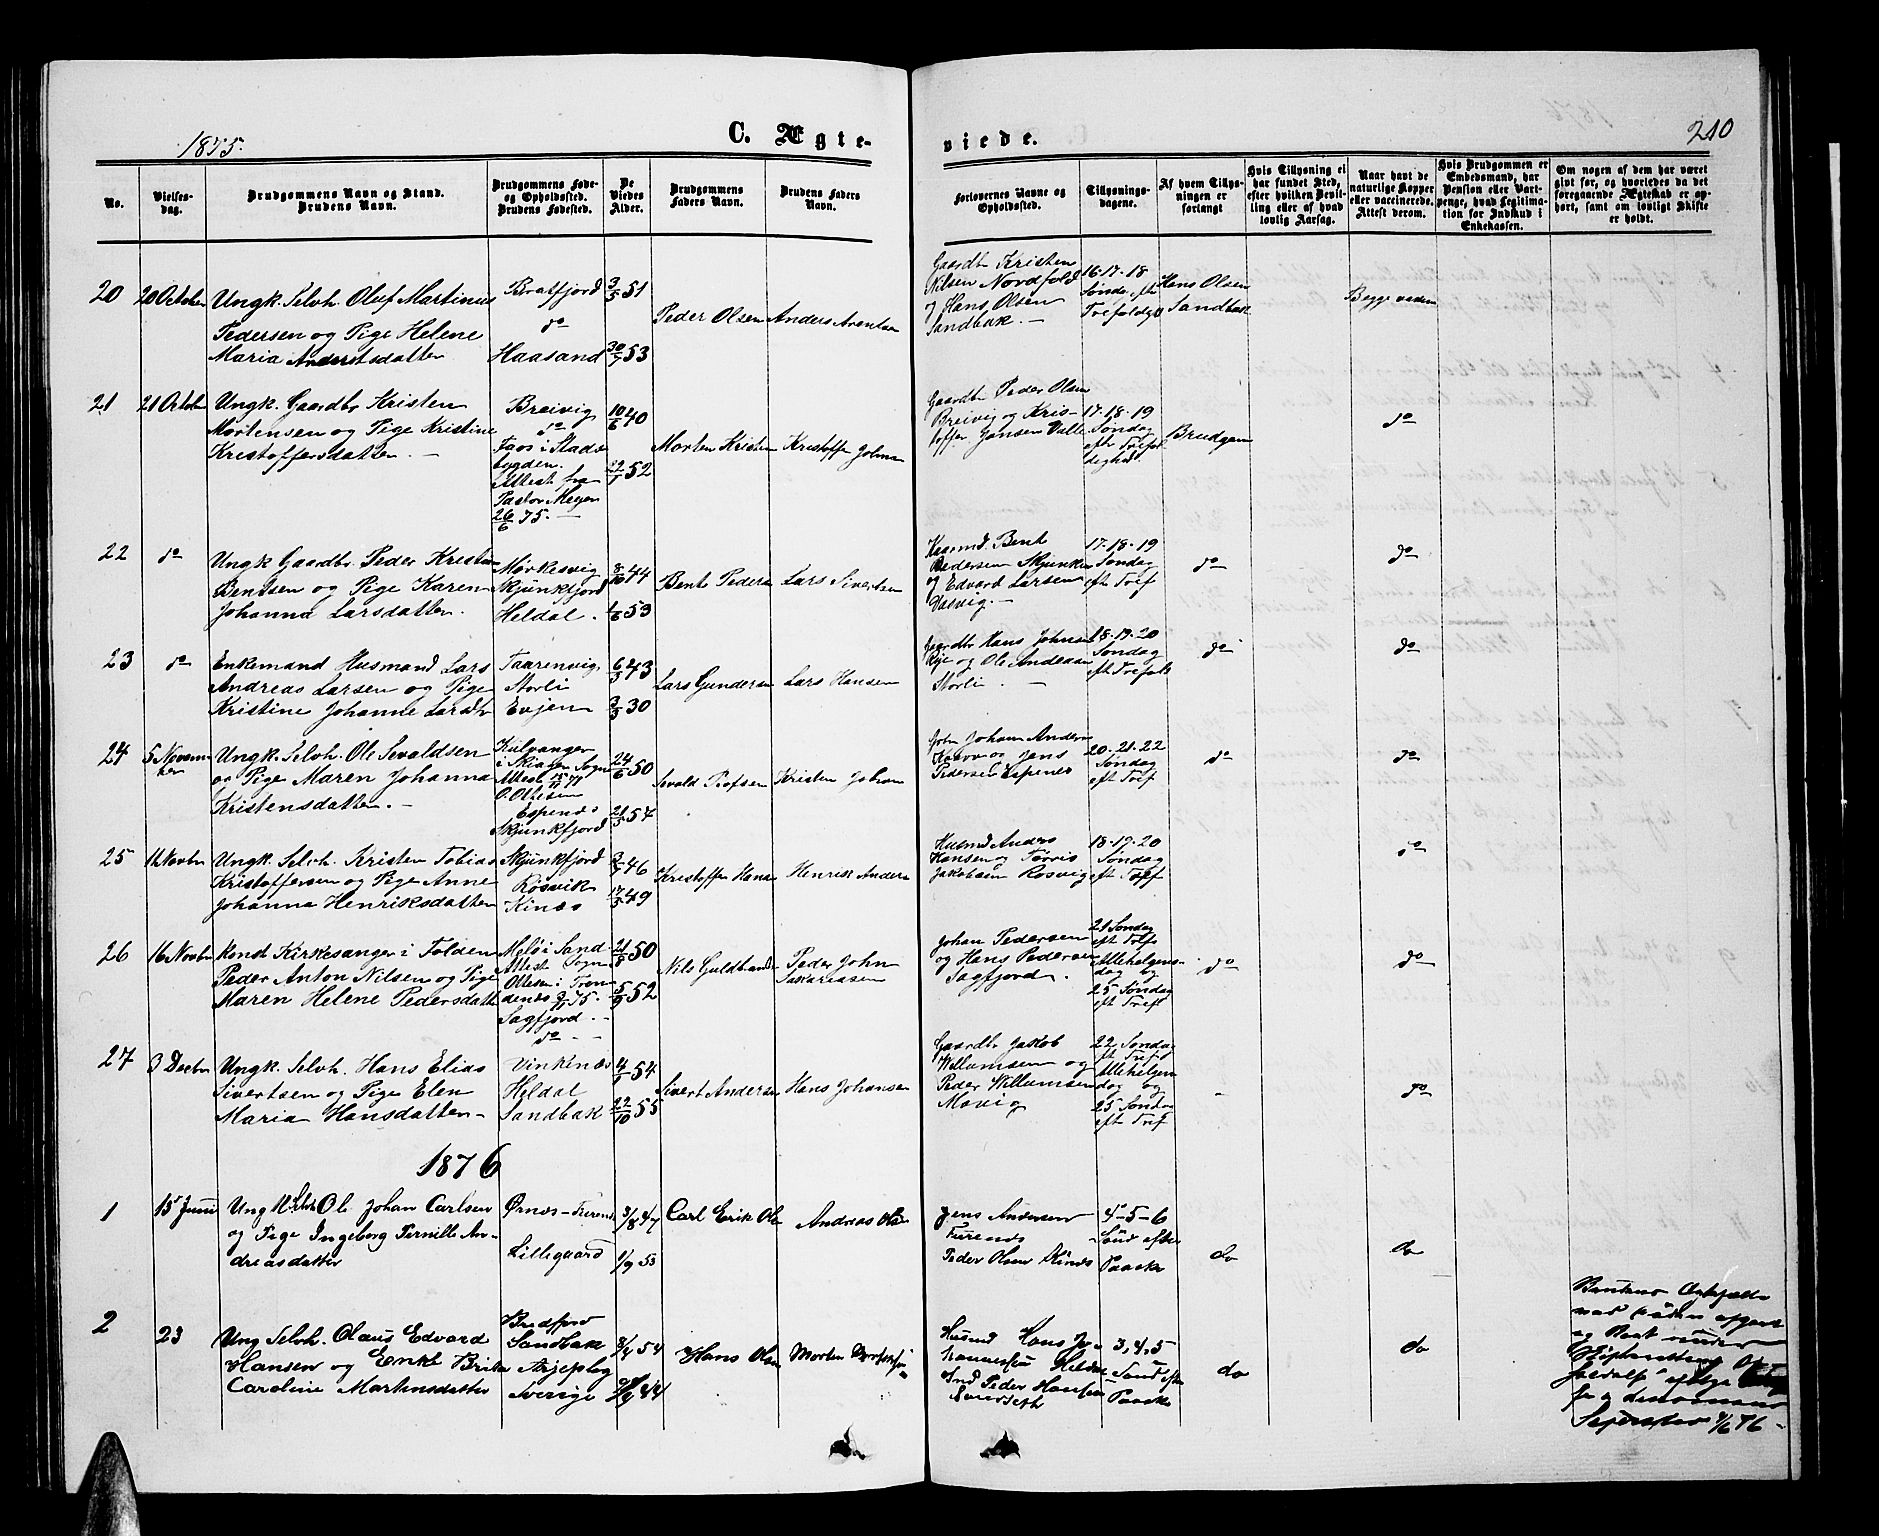 1875.
C. Ægte-
viede.
210
No.
Vielses-
dag.
Brudgommens Navn og Stand.
Brudens Navn.
Brudgommens Føde-
og Opholdssted.
Brudens Fødested.
De
Viedes
Alder.
Brudgommens
Faders Navn.
Brudens Faders
Navn.
Forlovernes Navne og
Opholdssted.
Tillysnings-
dagene.
Af hvem Tillys-
ningen er
forlangt
Hvis Tillysning ei
har fundet Sted,
efter hvilken Bevil-
ling eller af hvad
lovlig Aarsag.
Naar havt de
naturlige Kopper
eller vaccinerede.
Attest derom.
Hvis Brudgommen er
Embedsmand, har
Pension eller Vart-
penge, hvad Legitima-
tion for Indskud i
Enkekassen.
Om nogen af dem har været
gift før, og hvorledes da det
foregaaende Ægteskab er op-
hørt, samt om lovligt Skifte
er holdt.
20
20 October
Ungk. Selvh. Oluf Martinus
Pedersen og Pige Helene
Maria Anderstsdatter
Bratfjord
do
Haasand
3/5 51
30/7 53
Peder Olsen
Anders Arentsen
Gaardbr Kristen
Nilsen Nordfold
og Hans Olsen
Sandbak. -
16-17-18
Søndag eft
Trefoldgh
Hans Olsen
Sandbak
Begge vaccin
21
21 October
Ungk. Gaardbr Kristen
Mortensen og Pige Kristine
Kristoffersdatter. -
Breivig
do
i Stads-
bygden.
Attest fra
Pastor Meyer
26/6 75. -
10/6 40
22/1 52
Morten Kristen
Kristoffer Johan
Gaardbr Peder Olsen
Breivig og Kris-
toffer Jansen Valle
17-18-19
Søndag
eftr Trefol
dighed.
Brudgom
do
22
do
Ungk Gaardbr. Peder Kristian
Bentsen og Pige Karen
Johanna Larsdatter.
Mørkesvig
Skjunkfjord
Heldal.
8/10 44
1/6 53
Bent Peders
Lars Sivertsen
Bent
Pedersen Skjunken
og Edvard Larsen
17-18-19
Søndag
eft Tref
do
do
23
do
Enkemand Husmand Lars
Andreas Larsen og Pige
Kristine Johanne Larsdtr
Taarenvig,
Storli
Evjen
6/3 43
2/3 30
Lars Gundersen
Lars Hansen
Gaardbr Hans Johnsen
og Ole Andreasen
Storli -
18-19-20
Søndag
eft Trefold
do
do
24
5 Novem-
ber
Ungk. Selvh. Ole Sevaldsen
og Pige Maren Johanna
Kristensdatter. -
i Skjerstad Sogn
Attest
O. Ottesen
Espenes
Skjunkfjord
24/6 50
21/5 54
Sevald
Kristen Johan
Johan Anders
og Jens
Pedersen Espenes
20-21-22
Søndag
eft Tref
do
do
25
11 Novbr
Ungk. Selvh. Kristen Tobias
Kristoffersen og Pige Anne
Johanna Henriksdatter
Skjunkfjord
Røsvik
Kines
2/7 46
17/3 49
Kristoffer Hans
Henrik Anders
Husmd Anders
Hansen og Torris
Jakobsen Rosvig
18-19-20
Søndag
eft Tref
do
26
16 Novbr
Konst Kirkesanger i Folden
Peder Anton Nilsen og Pige
Maren Helene Pedersdatt
Melø i Sand-
Attest Sogn,
Ottesen i Tron-
denes 75.
Sagfjord. -
do - -
21/8 50
5/9 52
Nils Guldbrands
Peder John
Sakariasen
Johan Pedersen
og Hans Pedersen
Sagfjord.
21 Søndag
eft Tref
Allehelgens-
dag og
25 Søndag
eft Tref
do
do
27
3 Decbr
Ungk. Selvh. Hans Elias
Sivertsen og Pige Elen
Maria Hansdatter -
Vinkenæs
Heldal
Sandbak
4/1 54
22/10 55
Sivert Andersen
Hans Johansen
Gaardbr Jakob
Willumsen og
Peder Willumsen
Movig
22 Søndag
eft Tref
Allehelgen
dag og
25 Søndag
eft Tref
-
do
1876
1
15 Juni
Ungk Selvh Ole Johan Carlsen
og Pige Ingeborg Pernille An-
dreasdatter
Ørnes - Furenes
Lillegaard
3/8 47
1/9 53
Carl Erik Ols
Andreas Ols
Jens Andersen
Furenes
Peder Olsen
4-5-6
Sønd efter
Paaske
do
do
2
23
Ung Selvh. Olaus Edvard
Hansen og Enke Brita
Caroline Martinsdatter
Bredfjord
Sandbak
Arjeplog
Sverige
8/4 54
44
Hans Olsen
Morten
Husmd Hans Jo-
hannessen Heldal
Ind Peder Hansen
3, 4, 5
Sønd efter
Paaske
do
do
76